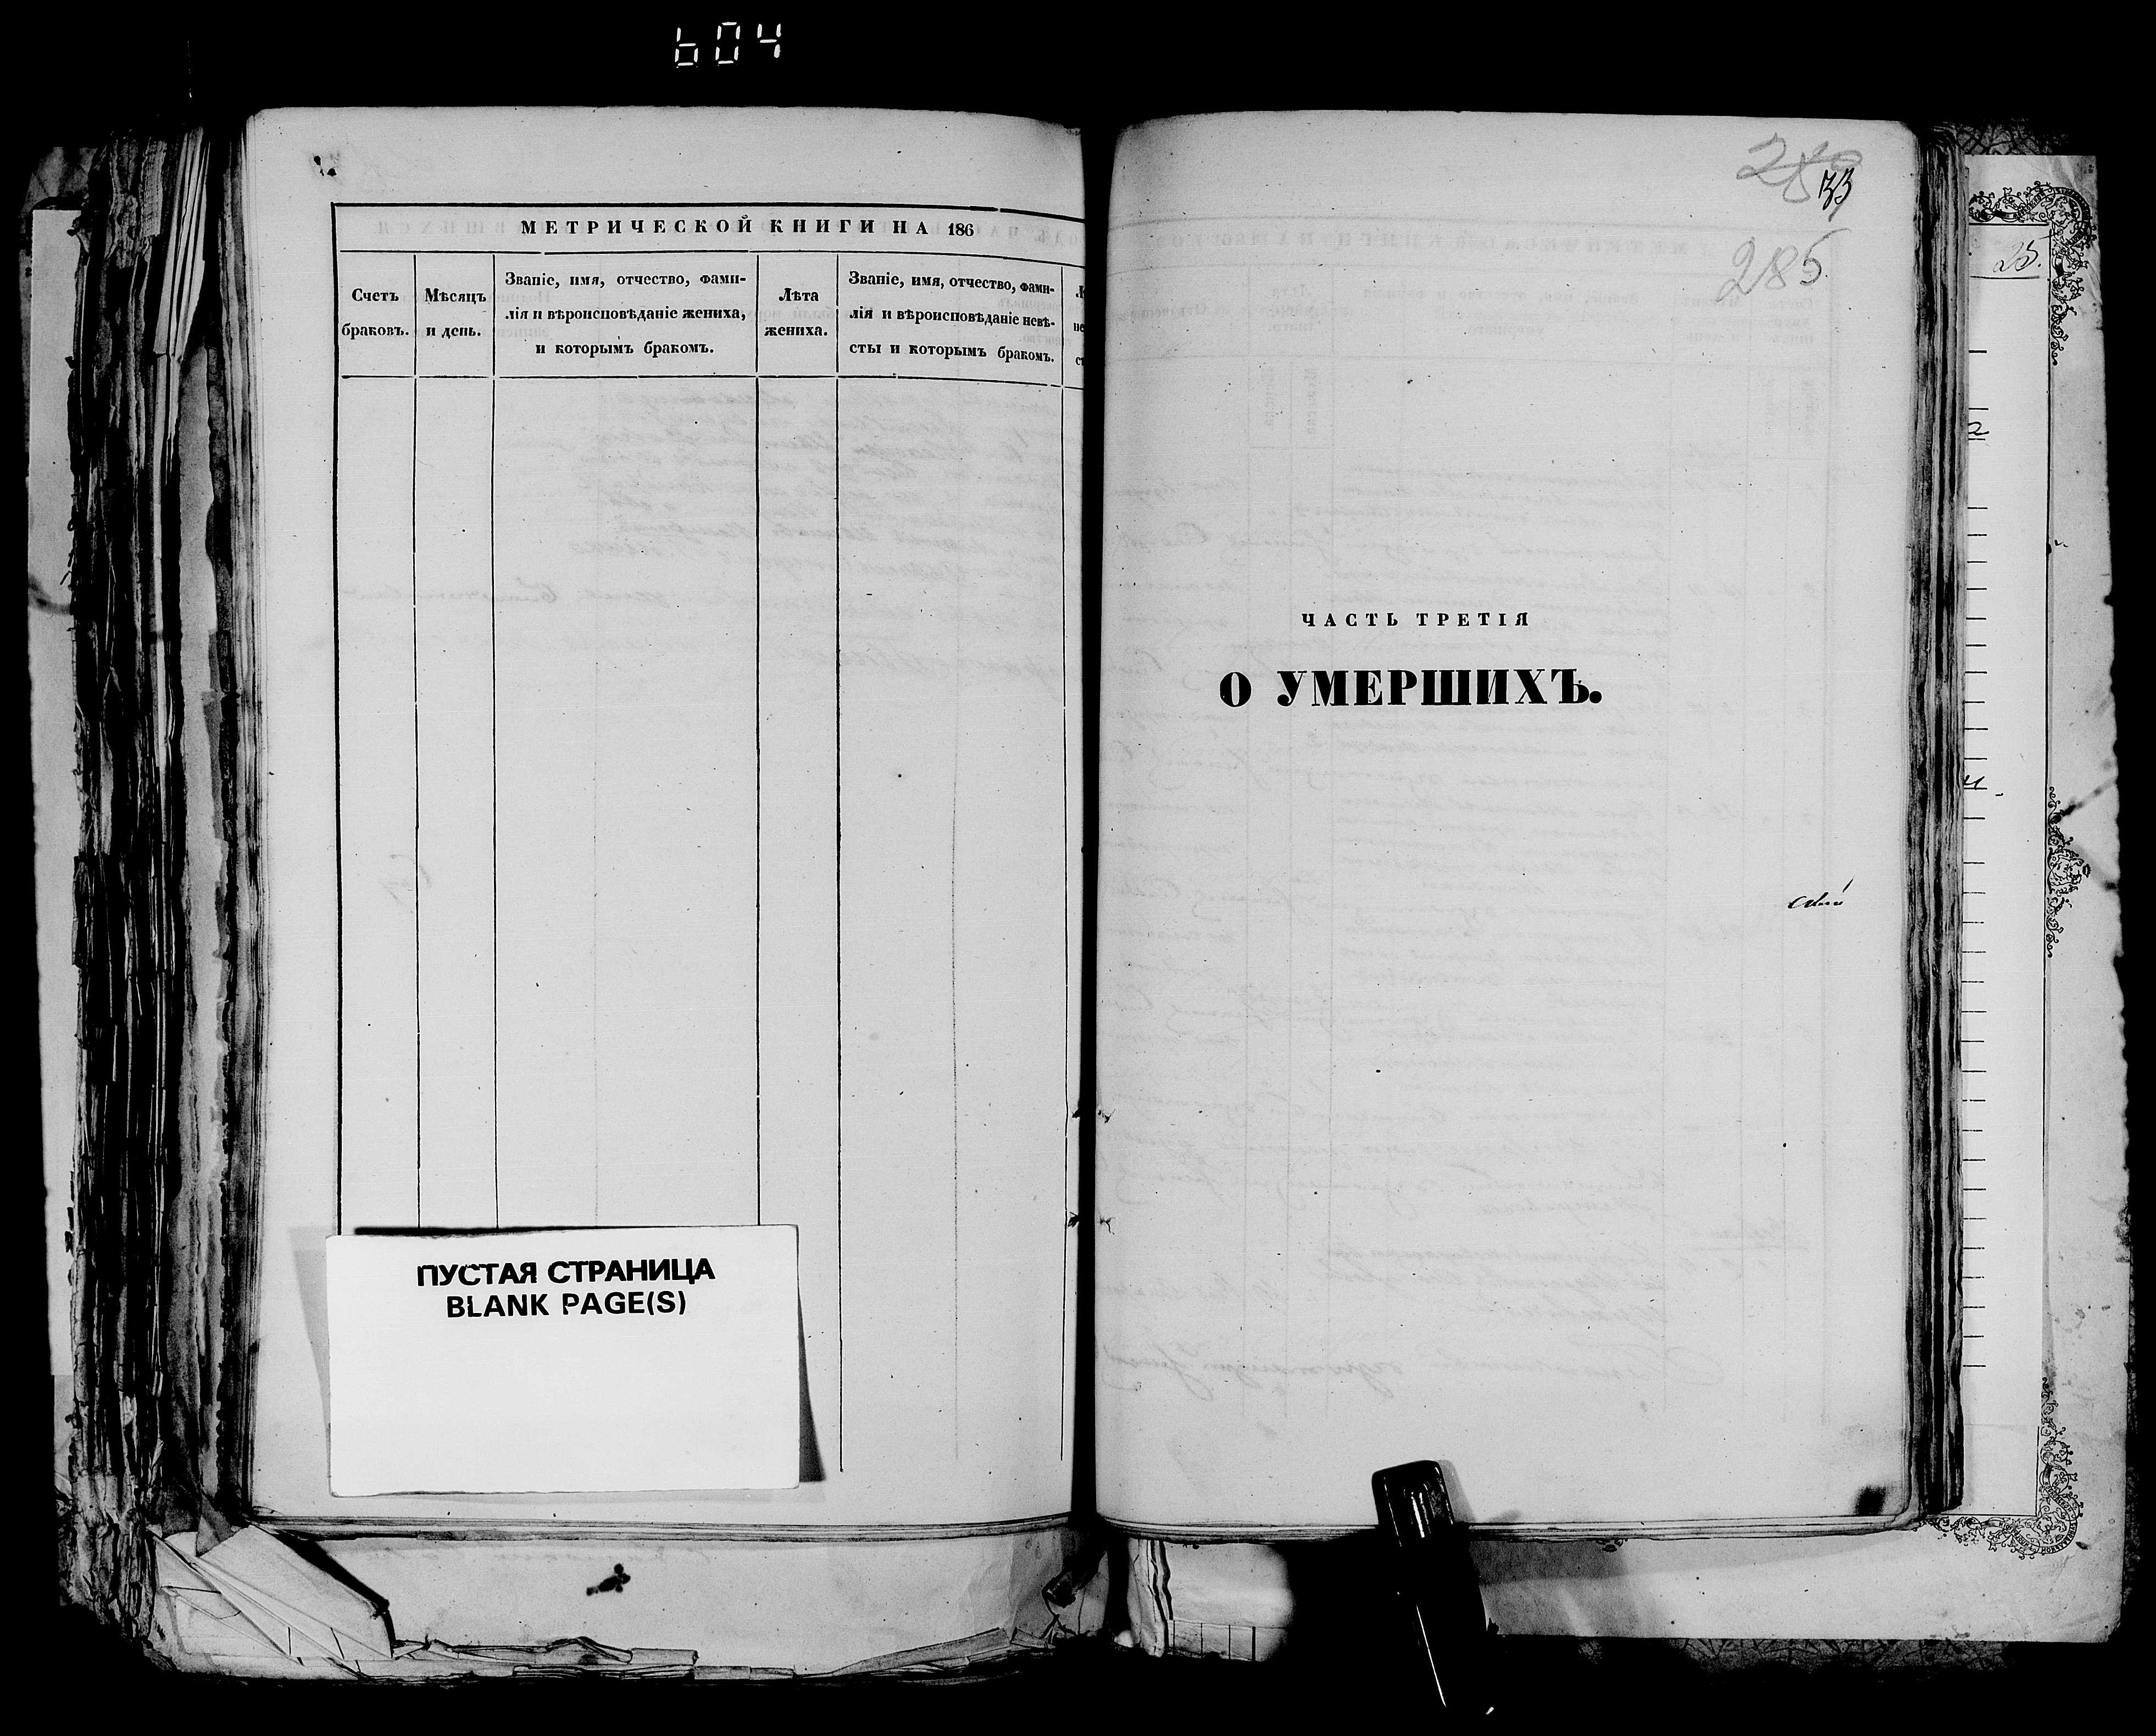 604
МЕТРИЧЕСКОЙ КНИГИ НА 186
Счетъ
браковъ.
Мѣсяцъ
и день.
Званіе, имя, отчество, фами-
лія и вѣроисповѣданіе жениха,
и которымъ бракомъ.
Лѣта
жениха.
Званіе, имя, отчество, фами-
лія и вѣроисповѣданіе невѣ-
сты и которымъ бракомъ.
ПУСТАЯ СТРАНИЦА
BLANK PAGE(S)
33
285
ЧАСТЬ ТРЕТІЯ
О УМЕРШИХЪ.
25.
2
4